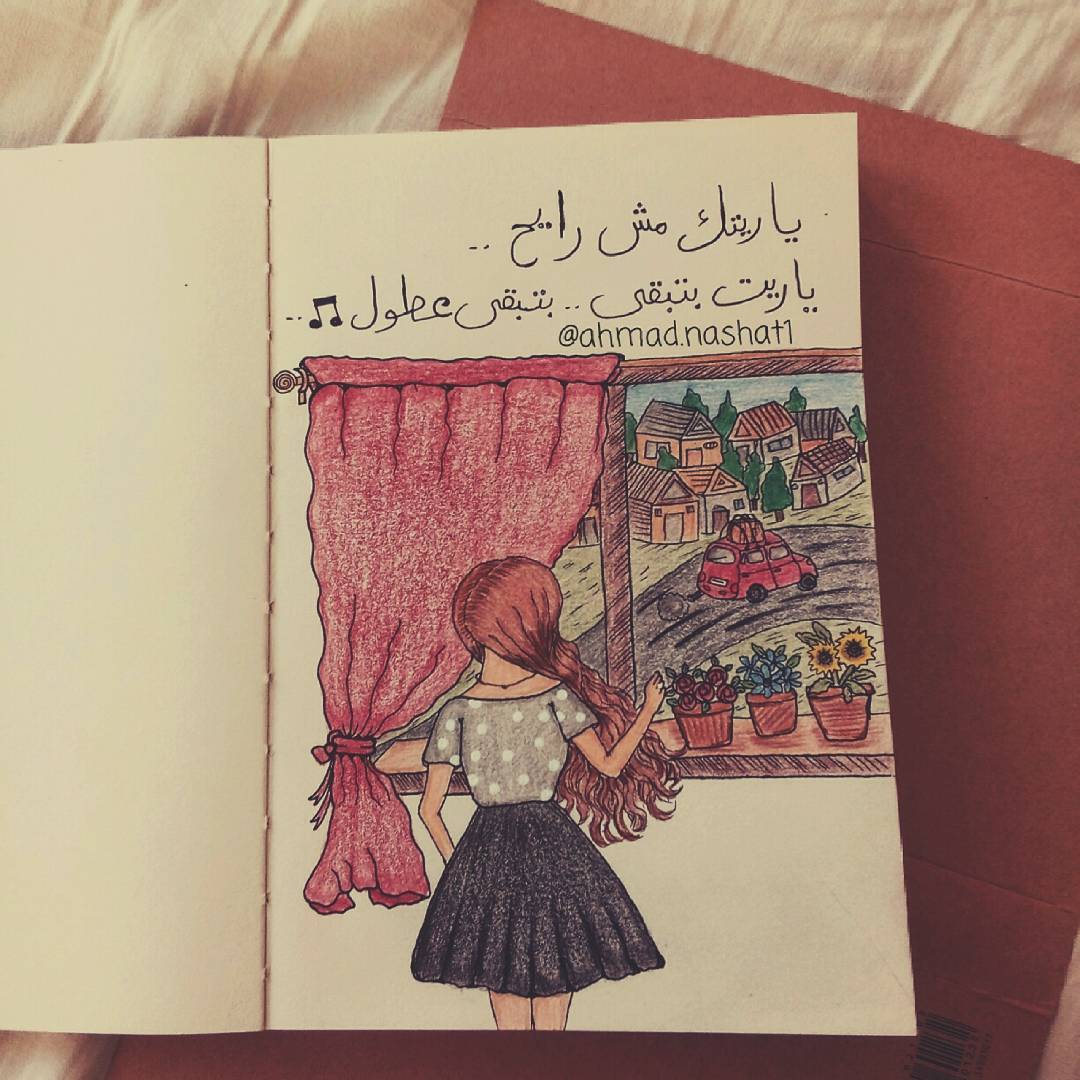 ياريتك مش رايح ..
ياريت بتبقى .. بتبقى عطول ♫ ..
@ahmad.nashat1